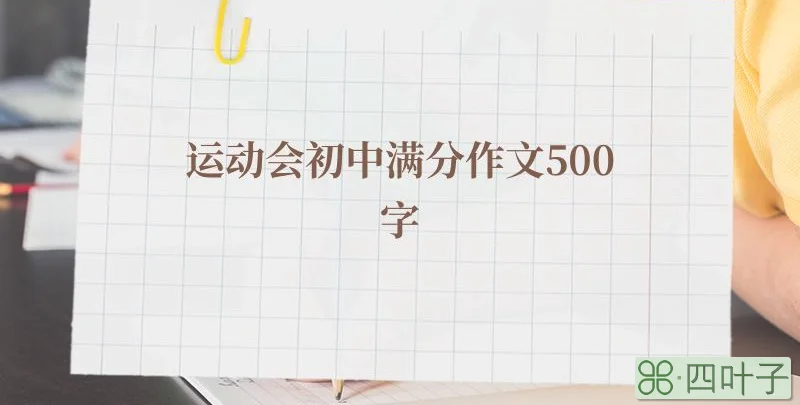 运动会初中满分作文500
字
四叶子